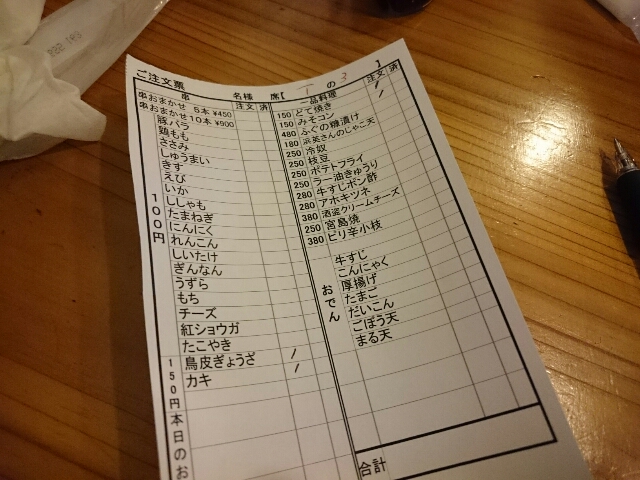 ご注文票
名様 席【 1 の 3 】
串 注文 済
串おまかせ 5本 ¥450
串おまかせ 10本 ¥900
100円
豚バラ
鶏もも
ささみ
しゅうまい
きす
えび
いか
ししゃも
たまねぎ
にんにく
れんこん
しいたけ
ぎんなん
うずら
もち
チーズ
紅ショウガ
たこやき
150円
鳥皮ぎょうざ /
カキ /
本日のお
一品料理 注文 済
150 どて焼き /
150 みそコン /
480 ふぐの糠漬け
180 浜英さんのじゃこ天
250 冷奴
250 枝豆
250 ポテトフライ
250 ラー油きゅうり
280 牛すじポン酢
280 アホキツネ
380 酒盗クリームチーズ
250 宮島焼
380 ピリ辛小枝
おでん
牛すじ
こんにゃく
厚揚げ
たまご
だいこん
ごぼう天
まる天
合計